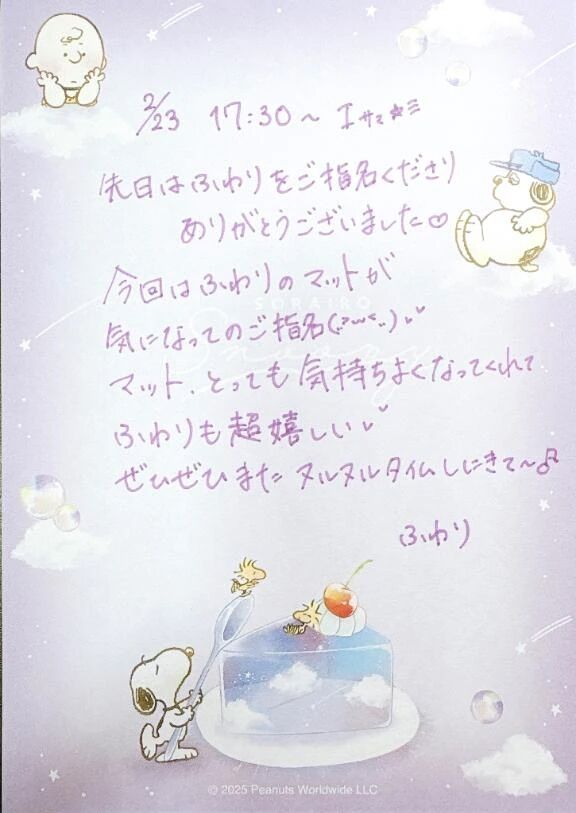 2/23 17:30~ Iサマ☆彡
先日はふわりをご指名くださり
ありがとうございました♡
今回はふわりのマットが
SORAIRO
気になってのご指名(,,>᎑<,,)♡
Snoopy
マット、とっても気持ちよくなってくれて
ふわりも超嬉しい♡
ぜひぜひまたヌルヌルタイムしにきて〜♫
ふわり
© 2025 Peanuts Worldwide LLC